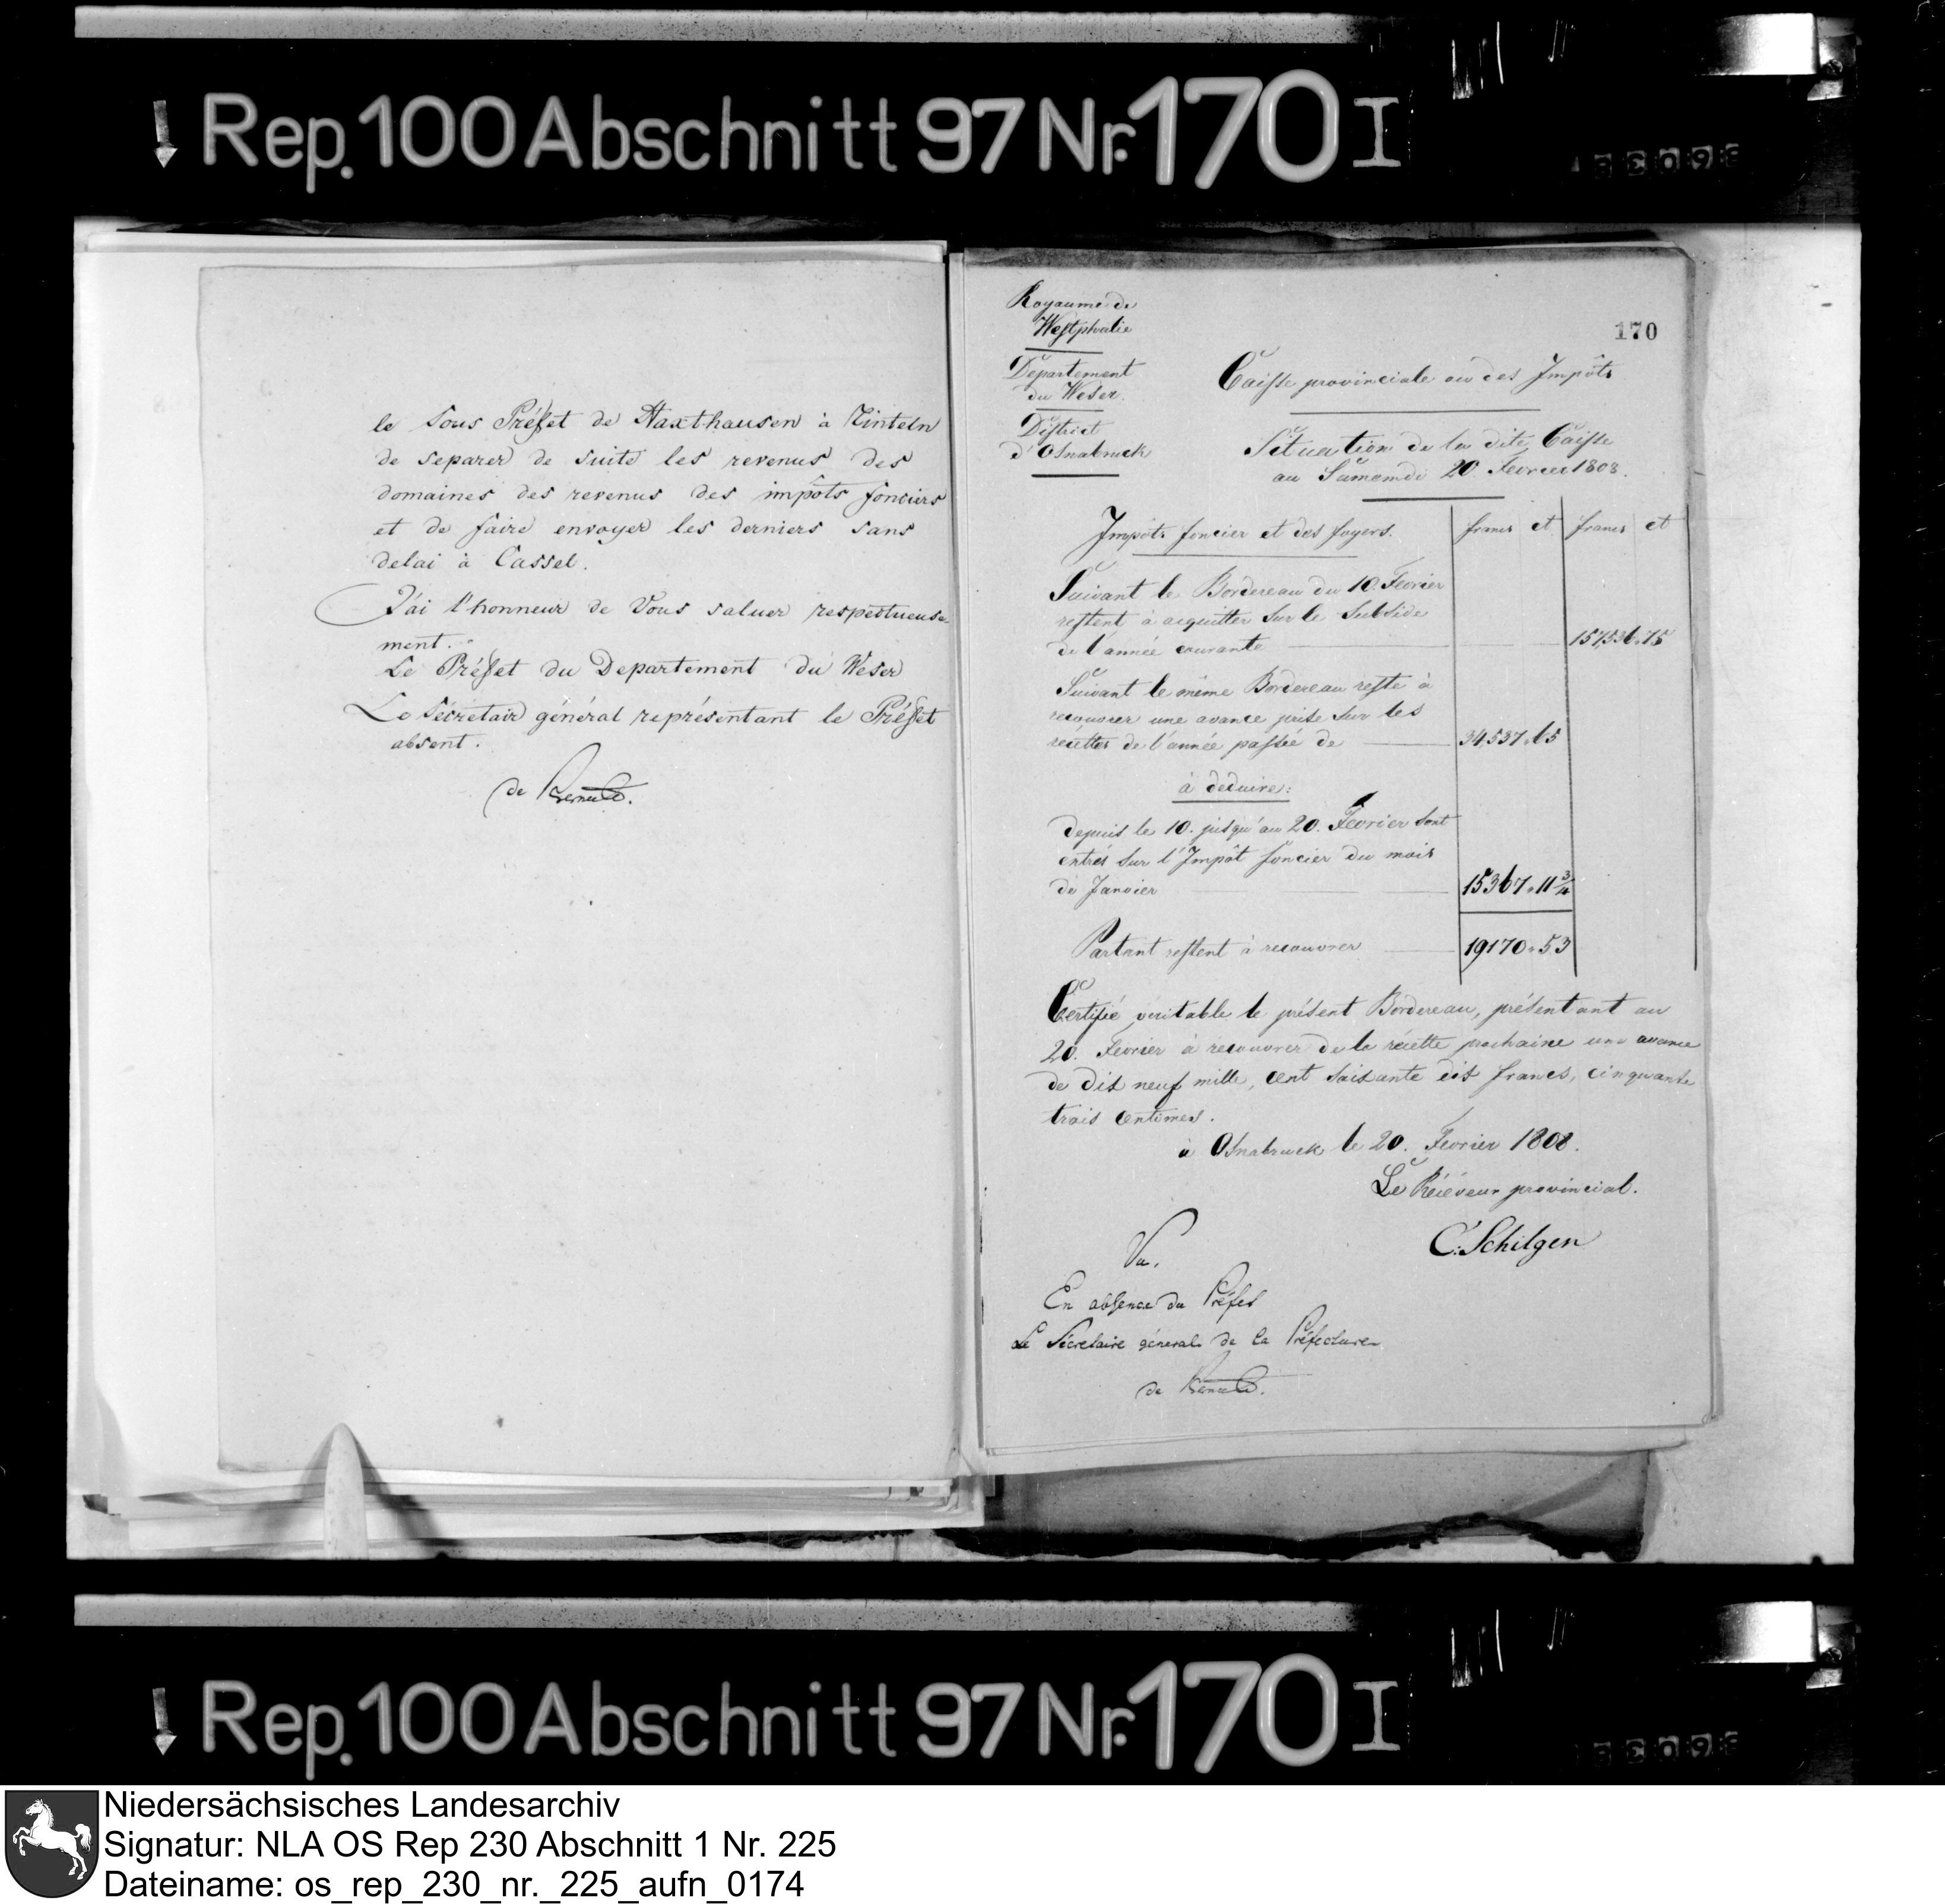 Rep. 100 Abschnitt 97 Nr. 170 I
le Sous Préfet de Haxthausen à Rinteln
de separer de suite les revenus des
domaines des revenus des impôts fonciers
et de faire envoyer les derniers sans
delai à Cassel.
J'ai l'honneur de Vous saluer respectueuse
ment.
Le Préfet du Departement du Weser
Le Sécretair général représentant le Préfet
absent.
de
Royaume de
Westphalie
Departement
du Weser.
District
d'Osnabruck
170
Caisse provinciale ou des Impôts
Situation de la dite Caisse
au Samemdi 20 Fevrier 1808.
Impôts foncier et des foyers.
francs ct francs ct
Suivant le Bordereau du 10. Fevrier
restent à acquitter sur le Subside
de l'année courante
Suivant le même Bordereau reste à
recouvrer une avance prise sur les
recettes de l'année passée de 34,537.65
à deduire:
depuis le 10. jusqu'au 20. Fevrier sont
entrés sur l'Impôt foncier du mois
de Janvier 15367.11 3/4
Partant restent à recouvrer 19170.53
Certifié veritable le présent Bordereau, présentant au
20. Fevrier à recouvrer de la récette prochaine une avance
de dix neuf mille, cent soixante dix francs, cinquante
trois centimes.
à Osnabruck le 20. Fevrier 1808.
Le Réceveur provincial.
C. Schilgen
Vu.
En absence du Préfet
Le Sécretaire général de la Préfecture
de
Rep. 100 Abschnitt 97 Nr. 170 I
Niedersächsisches Landesarchiv
Signatur: NLA OS Rep 230 Abschnitt 1 Nr. 225
Dateiname: os_rep_230_nr._225_aufn_0174